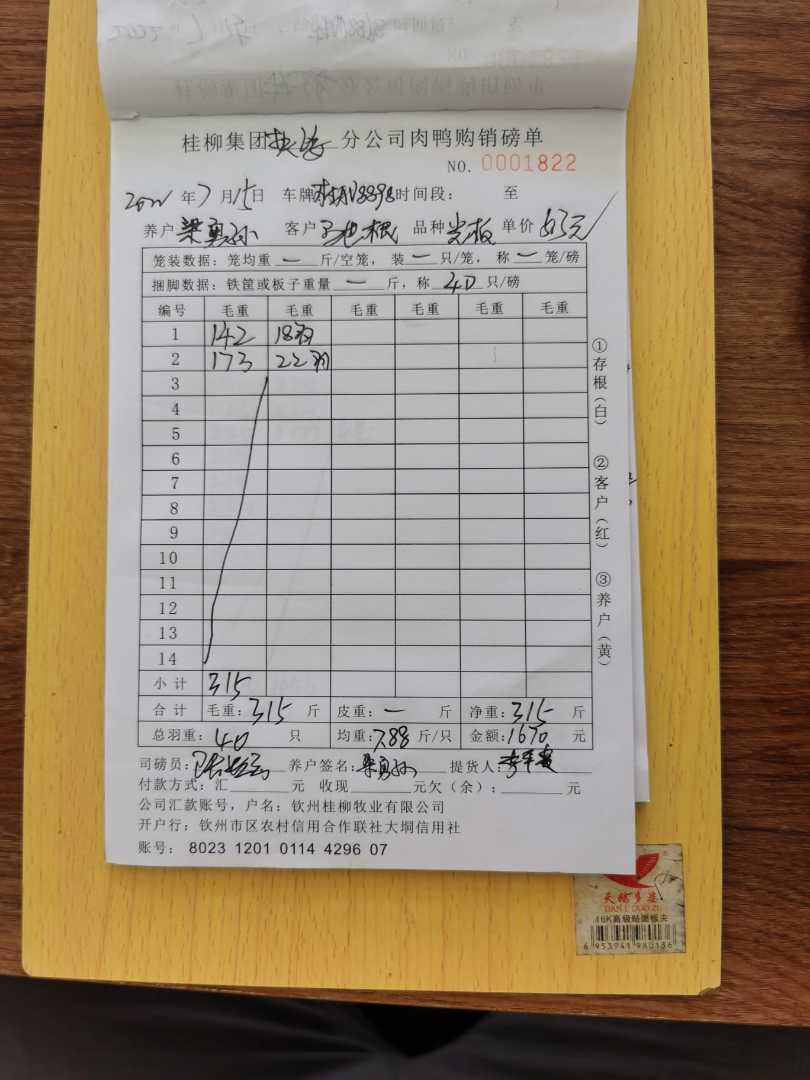 桂柳集团 分公司肉鸭购销磅单
NO. 0001822
2022年7月15日 车牌 V8898时间段： 至
养户梁勇孙 客户 根 品种 光板 单价 元
笼装数据：笼均重 一 斤/空笼，装 一 只/笼，称 一 笼/磅
捆脚数据：铁筐或板子重量 一 斤，称 40 只/磅
编号 毛重 毛重 毛重 毛重 毛重 毛重
1 142 18羽
2 173 22羽
3
4
5
6
7
8
9
10
11
12
13
14
小计 315
合计 毛重：315斤 皮重：一 斤 净重：315斤
总羽重：40 只 均重：7.88斤/只 金额：1670元
司磅员： 养户签名：梁勇孙 提货人：李
付款方式：汇 元 收现 元欠（余）； 元
公司汇款账号，户名：钦州桂柳牧业有限公司
开户行：钦州市区农村信用合作联社大垌信用社
账号： 8023 1201 0114 4296 07
①存根（白） ②客户（红） ③养户（黄）
天骄多姿
16K高级贴面板夹
6 953941 980136